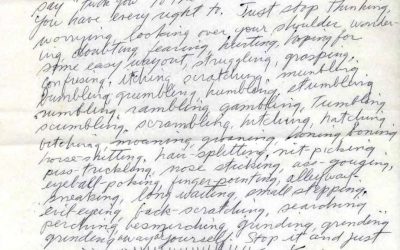 say "Fuck you" to the
you have every right to. Just stop thinking,
worrying, looking over your shoulder, wonder-
ing, doubting, fearing, hurting, hoping for
some easy way out, struggling, grasping,
confusing, itching, scratching, mumbling,
bumbling, grumbling, humbling, stumbling,
numbling, rambling, gambling, tumbling,
scumbling, scrambling, hitching, hatching,
bitching, moaning, groaning, honing, boning,
horse-shitting, hair-splitting, nit-picking,
piss-trickling, nose sticking, ass-gouging,
eyeball-poking, finger-pointing, alleyway-
sneaking, long waiting, small stepping,
evil-eyeing, back-scratching, searching,
perching, besmirching, grinding, grinding,
grinding away at yourself. Stop it and just